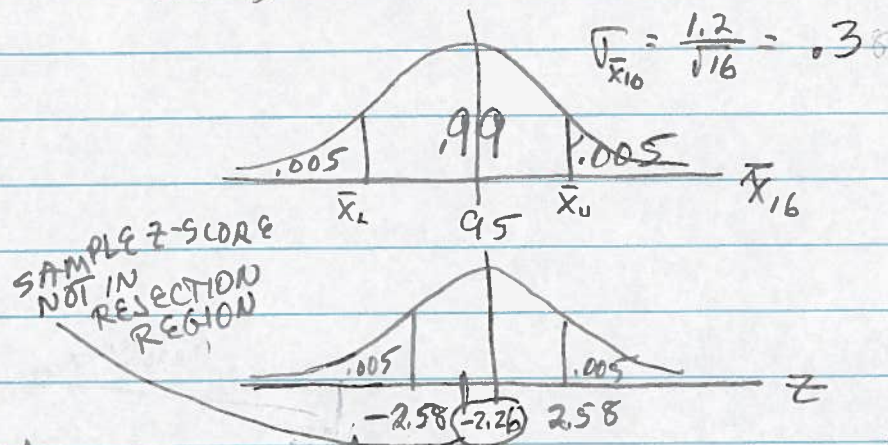 σx̄10 = 1.2/√16 = .3
.005 .99 .005
x̄L 95 x̄U x̄16
SAMPLE Z-SCORE
NOT IN
REJECTION
REGION
.005 .005
-2.58 -2.26 2.58 Z